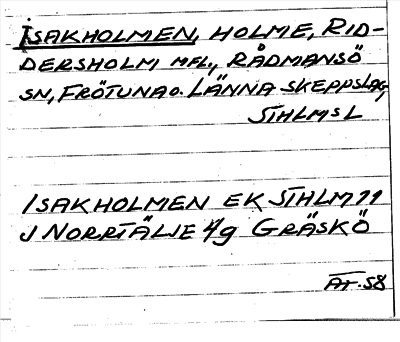 ISAKHOLMEN, HOLME, RID-
DERSHOLM MFL, RÅDMANSÖ
SN, FRÖTUNA O. LÄNNA SKEPPSLAG,
STHLMS L
ISAKHOLMEN EK STHLM 77
J NORRTÄLJE 4/9 GRÄSKÖ
ÅT. 58